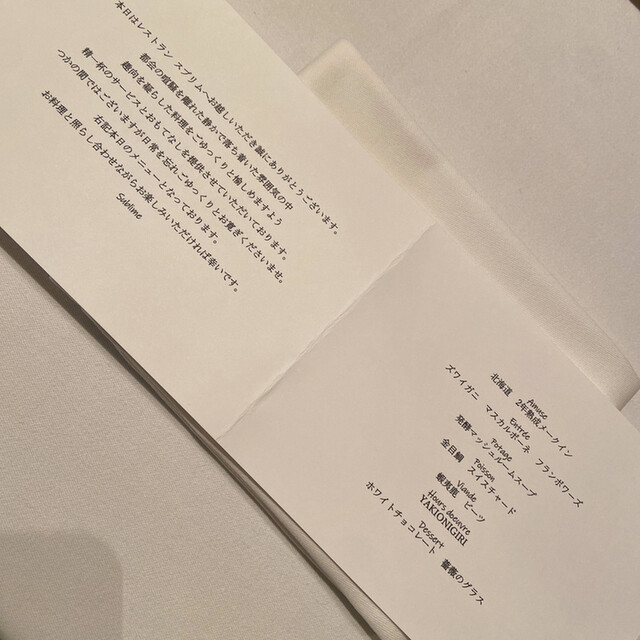 本日はレストラン スブリムへお越しいただき誠にありがとうございます。
都会の喧騒を離れた静かで落ち着いた雰囲気の中
趣向を凝らした料理をごゆっくりと愉しめますよう
精一杯のサービスとおもてなしを提供させていただいております。
つかの間ではございますが日常を忘れごゆっくりとお寛ぎくださいませ。
右記本日のメニューとなっております。
お料理と照らし合わせながらお楽しみいただければ幸いです。
Sublime
Amuse
北海道 2年熟成メークイン
Entrée
ズワイガニ マスカルポーネ フランボワーズ
Potage
発酵マッシュルームスープ
Poisson
金目鯛 スイスチャード
Viande
蝦夷鹿 ビーツ
Hours doeuvre
YAKIONIGIRI
Dessert
ホワイトチョコレート 薔薇のグラス